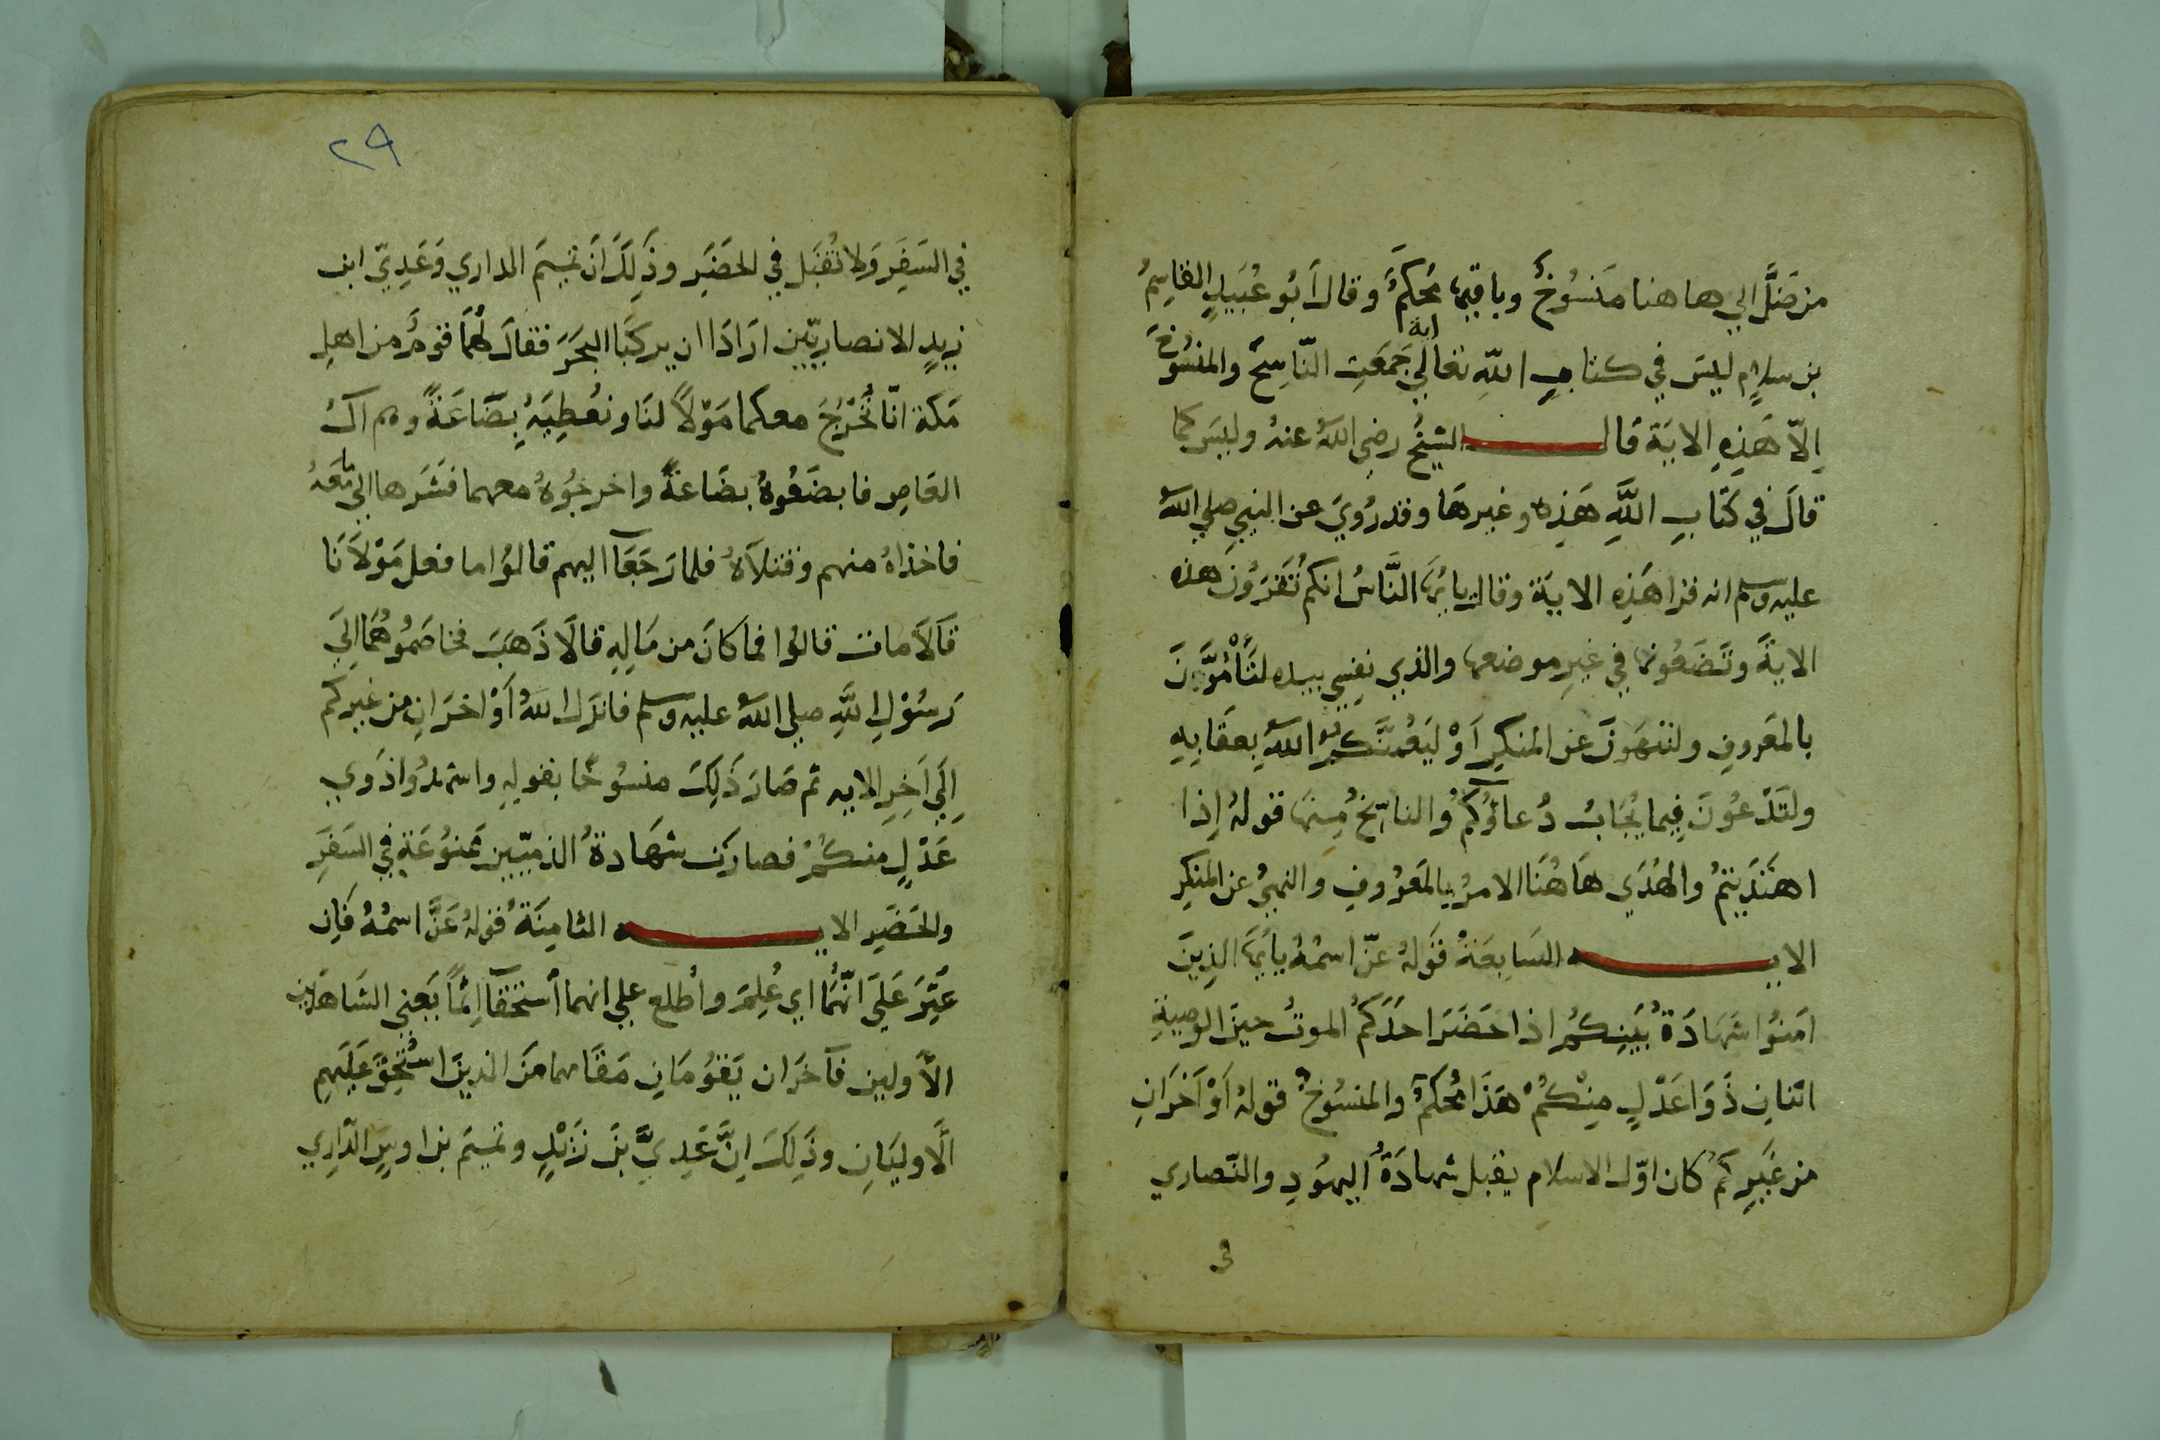 من ضلّ الي هاهنا مَنسُوخٌ وباقيها محكمٌ وقال أبُو عُبَيدٍ القاسِمُ
بن سلامٍ ليسَ في كتابِ اللهِ تعالي اية جَمعَتِ النّاسِخَ والمنسُوخَ
اِلّا هَذِهِ الايَة قَالــــــــ الشيخُ رضي اللهُ عنهُ وليس كما
قالَ في كتابِ اللَّهِ هَذِه وغيرهَا وقد رُوِيَ عن النبيِ صلي اللهُ
عليه وسلم انه قرا هَذِهِ الايَة وقال يا يُّهَا النَّاسُ انكم تُقرَوُنَ هذه
الايةَ وتَضَعُونها في غيرِ موضعها والذي نفسِي بيده لتَأمُرَنَّ
بالمَعَروفِ ولتنهَوَنَّ عن المنكرِ اَوْ ليَعُمَّنَّكُمُ اللهُ بِعقَابِهِ
ولتَدْعُونَ فِيما يُجَابُ دُعاؤُكُمْ والناسِخُ مِنها قولهُ اِذا
اهتَدَيتمُ والهُدَي هَاهُنَا الامرُ بالمَعرُوفِ وَالنهيُ عن المنكرِ
الايــــــــه السَابعَةْ قَولهُ عزّ اسمُهُ يايُّهَا الذِينَ
امَنوُا شَهَادَةُ بَينِكُمْ اذا حَضَرَ احَدَكُمُ الموتُ حينَ الوصيةِ
اثنانِ ذَوَا عَدْلٍ مِنْكُمْ هَذَا مُحكَمٌ والمنسُوخُ قولهُ اَوْ اَخرَانِ
من غَيرِكُمْ كان اوّل الاسلام يقبل شهادَةُ اليهُودِ والنّصاري
في
٢٩
في السَفَرِ وَلا تُقبَل في الحَضَرِ وذَلِكَ اَنّ تميمَ الداري وَعَدِيّ ابن
زيدٍ الانصاريّين ارَادَا ان يركبَا البحَرَ فقالَ لهُمَا قومٌ من اهلِ
مَكة انّا نُخْرِجَ معكما مَوْلاً لنَا ونعُطِيَهُ بِضَاعَةً وهم اَلُ
العَاصِ فابضَعُوهُ بضَاعةً واخرجُوُهُ معهما فشَرَها الي ما مَعَهُ
فاخذاهُ منهم وقتلاَهُ فلما رَجَعَا اليهم قالوُا ما فعل مَوْلاَنَا
قَالاَ مات قالوُا فما كانَ من مَالِهِ قالاَ ذَهَبَ فخاصَمُوهُمَا اليَ
رَسُوْلِ اللَّهِ صلي اللهُ عليه وسلم فانزل اللهُ اَوْ اخرَانِ من غيركم
اِلَي اَخِرِ الايه ثم صَارَ ذَلِكَ منسُوخًا بقولهِ واشهدُوا ذَوي
عَدْلٍ مِنكُمْ فصارت شهَادةُ الذميّين مَمنوُعَةٍ في السَفَرِ
والحَضَرِ الايــــــــه الثامِنَة ُ قولهُ عَزَّ اسمُهُ فَاِن
عُثِرَ عَلَيَ انّهُمَا اي عُلِمَ وأُطلِع علي انهما استَحَقَا اِثمًا يَعني الشاهدين
الأوليين فآخرَانِ يَقوُمَانِ مَقَامهما مَنَ الذينَ استُحِقَّ عَلَيهِمِ
الأوليَانِ وذَلِكَ اِنَّ عَدِيَّ بنَ زَيْدٍ وتميمَ بن اوسٍ الدّاري